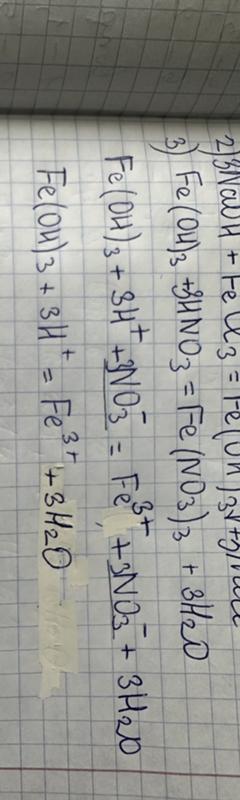 2) 3NaOH + FeCl3 = Fe(OH)3↓ + 3NaCl
3) Fe(OH)3 + 3HNO3 = Fe(NO3)3 + 3H2O
Fe(OH)3 + 3H⁺ + 3NO3⁻ = Fe³⁺ + 3NO3⁻ + 3H2O
Fe(OH)3 + 3H⁺ = Fe³⁺ + 3H2O